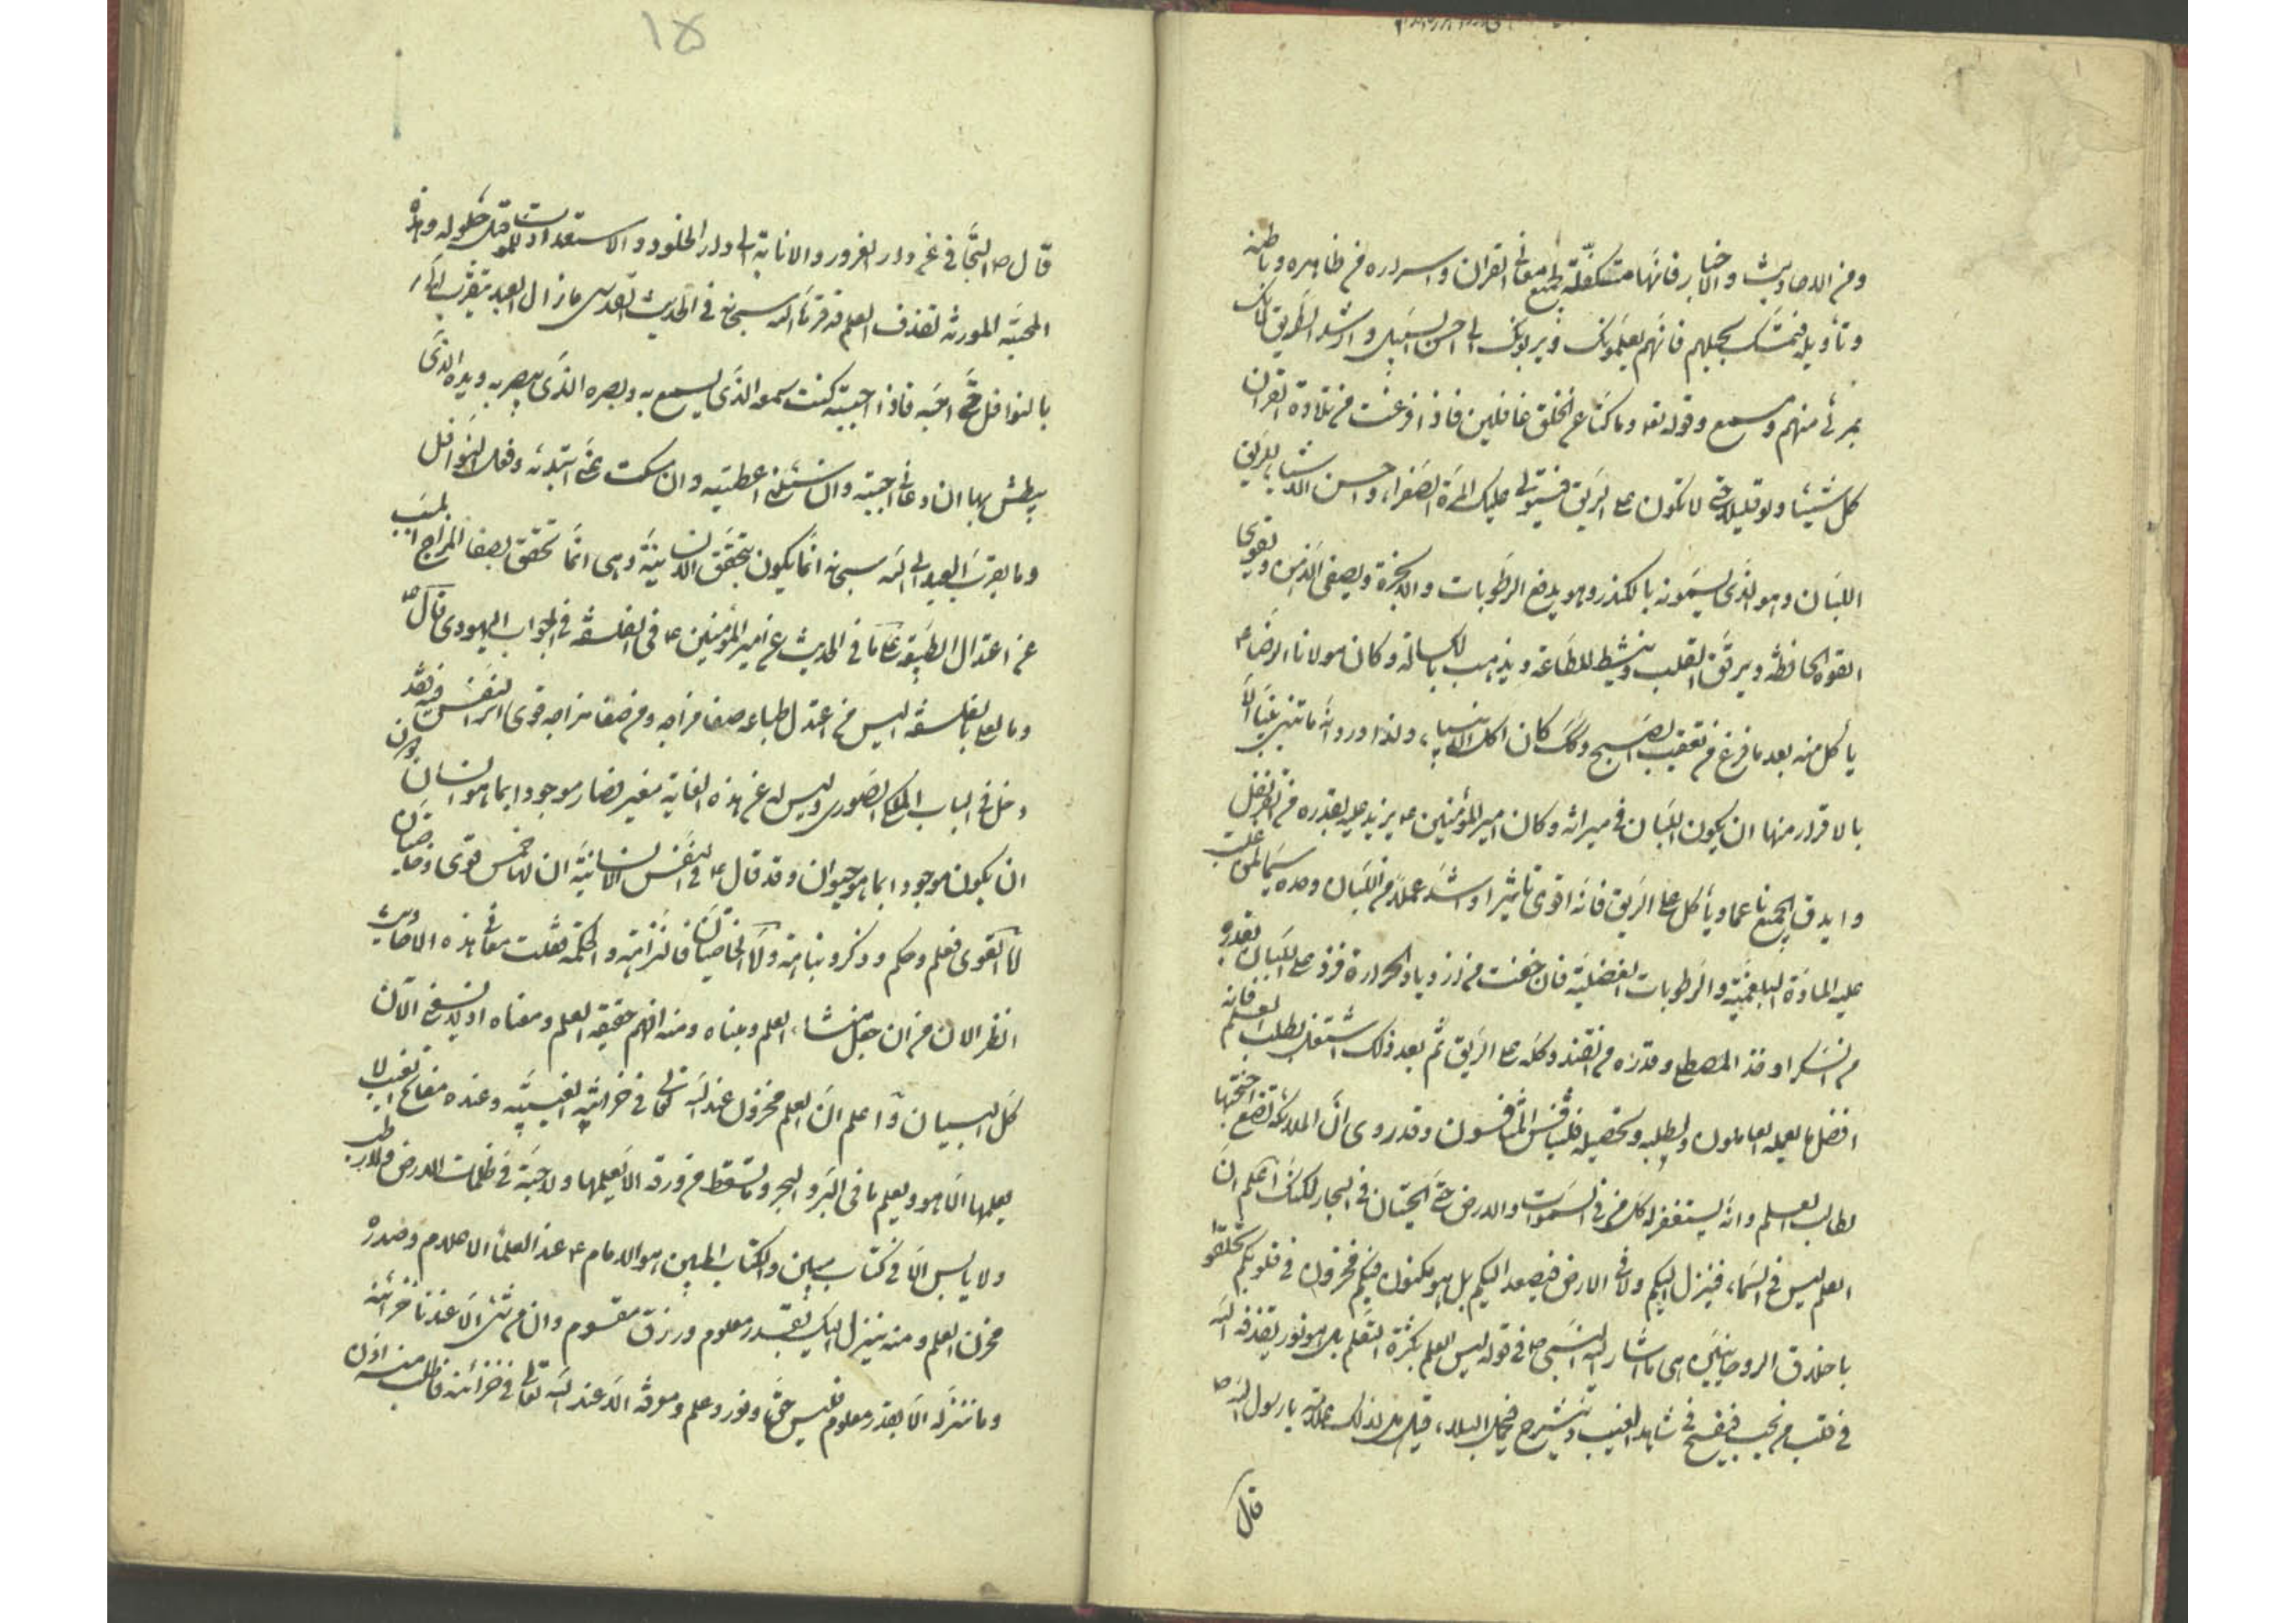 ومن الاحاديث والاخبار فانها متكفلة بجميع معاني القران واسراره من ظاهره وباطنه
وتأويله فتمسك بحبلهم فانهم يعلمونك ويربونك الى احسن السبيل وارشد الطريق لانك
بمرئ منهم ومسمع وقوله تعه وما كنا عن الخلق غافلين فاذا فرغت من تلاوة القران
كل شيئا ولو قليلا حتى لا تكون على الريق فيستولي عليك المرة الصفراء واحسن الاشياء للريق
اللبان وهو الذي يسمونه بالكندر وهو يدفع الرطوبات والابخرة ويصفى الذهن ويقوي
القوة الحافظة ويرقق القلب وينشط للطاعة ويذهب بالكسالة وكان مولانا الرضا ع
يأكل منه بعد ما فرغ من تعقيب الصبح وكك كان اكل الانبياء ولذا ورد انه ما تنبئ نبي الا
بالاقرار منها ان يكون اللبان في ميراثه وكان امير المؤمنين ع يزيد عليه بقدره من القرنفل
وايدق الجميع ناعما ويأكل على الريق فانه اقوى تاثيرا واشد عملا من اللبان وحده سيما لمن غلبت
عليه المادة البلغمية والرطوبات الفضلية فان خفت من ازدياد الحرارة فزد على اللبان بقدره
من السكر او خذ المصطكي وقدره من القند وكله على الريق ثم بعد ذلك اشتغل بطلب العلم فانه
افضل ما يعمله العاملون وبطلبه وتحصيله فليتنافس المتنافسون وقد روى ان الملائكة لتضع اجنحتها
لطالب العلم وانه يستغفر له كل من في السموات والارض حتى الحيتان في البحار لكنك اعلم ان
العلم ليس في السماء فينزل اليكم ولا في الارض فيصعد اليكم بل هو مكنون فيكم مخزون في قلوبكم تخلقوا
باخلاق الروحانيين وهي ما اشار اليه النبي ص في قوله ليس العلم بكثرة التعلم بل هو نور يقذفه الله
في قلب من يحب فينفسح فيشاهد الغيب وينشرح فيحمل البلاء قيل هل لذلك علامة يا رسول الله ص
قال
١٥
قال ص التجافي عن دار الغرور والانابة الى دار الخلود والاستعداد للموت قبل حلوله وهذه
المحبة المورثة لقذف العلم قد قرنها الله سبحانه في الحديث القدسي ما زال العبد يتقرب الي
بالنوافل حتى احبه فاذا احببته كنت سمعه الذي يسمع به وبصره الذي يبصر به ويده الذي
يبطش بها ان دعاني اجبته وان سئلني اعطيته وان سكت عني ابتدئه وفعل النوافل
وما يقرب العبد الى الله سبحانه انما يكون بتحقق الانسانية وهي انما تحقق بصفا المزاج المسبب
عن اعتدال الطبيعة على ما في الحديث عن امير المؤمنين ع في الفلسفة في الجواب اليهودى قال ع
وما تعني بالفلسفة اليس من اعتدل طباعه صفا مزاجه ومن صفا مزاجه قوى اثر النفس فيه فقد
دخل في الباب الملكي الصورى وليس له عن هذه الغاية مغير فصار موجودا بما هو انسان دون
ان يكون موجودا بما هو حيوان وقد قال ع في النفس الانسانية ان لها خمس قوى وخاصيتان
اما القوى فعلم وحلم وذكر ونباهة واما الخاصيتان فالنزاهة والحكمة فقلت معاني هذه الاحاديث
انظر الان من ان جعل منشاء العلم وبناه ومنه افهم حقيقة العلم ومعناه اذ لا يسعني الآن
كل البيان واعلم ان العلم مخزون عند الله تعالى في خزائنه الغيبية وعنده مفاتح الغيب لا
يعلمها الا هو ويعلم ما في البر والبحر وما تسقط من ورقة الا يعلمها ولا حبة في ظلمات الارض ولا رطب
ولا يابس الا في كتاب مبين والكتاب المبين هو الامام ع عند العلماء الاعلام وصدره
مخزن العلم ومنه ينزل اليك بقدر معلوم ورزق مقسوم وان من شئ الا عندنا خزائنه
وما ننزله الا بقدر معلوم فليس حق ونور وعلم ومعرفة الا عند الله تعالى في خزائنه فاطلب منه اذن